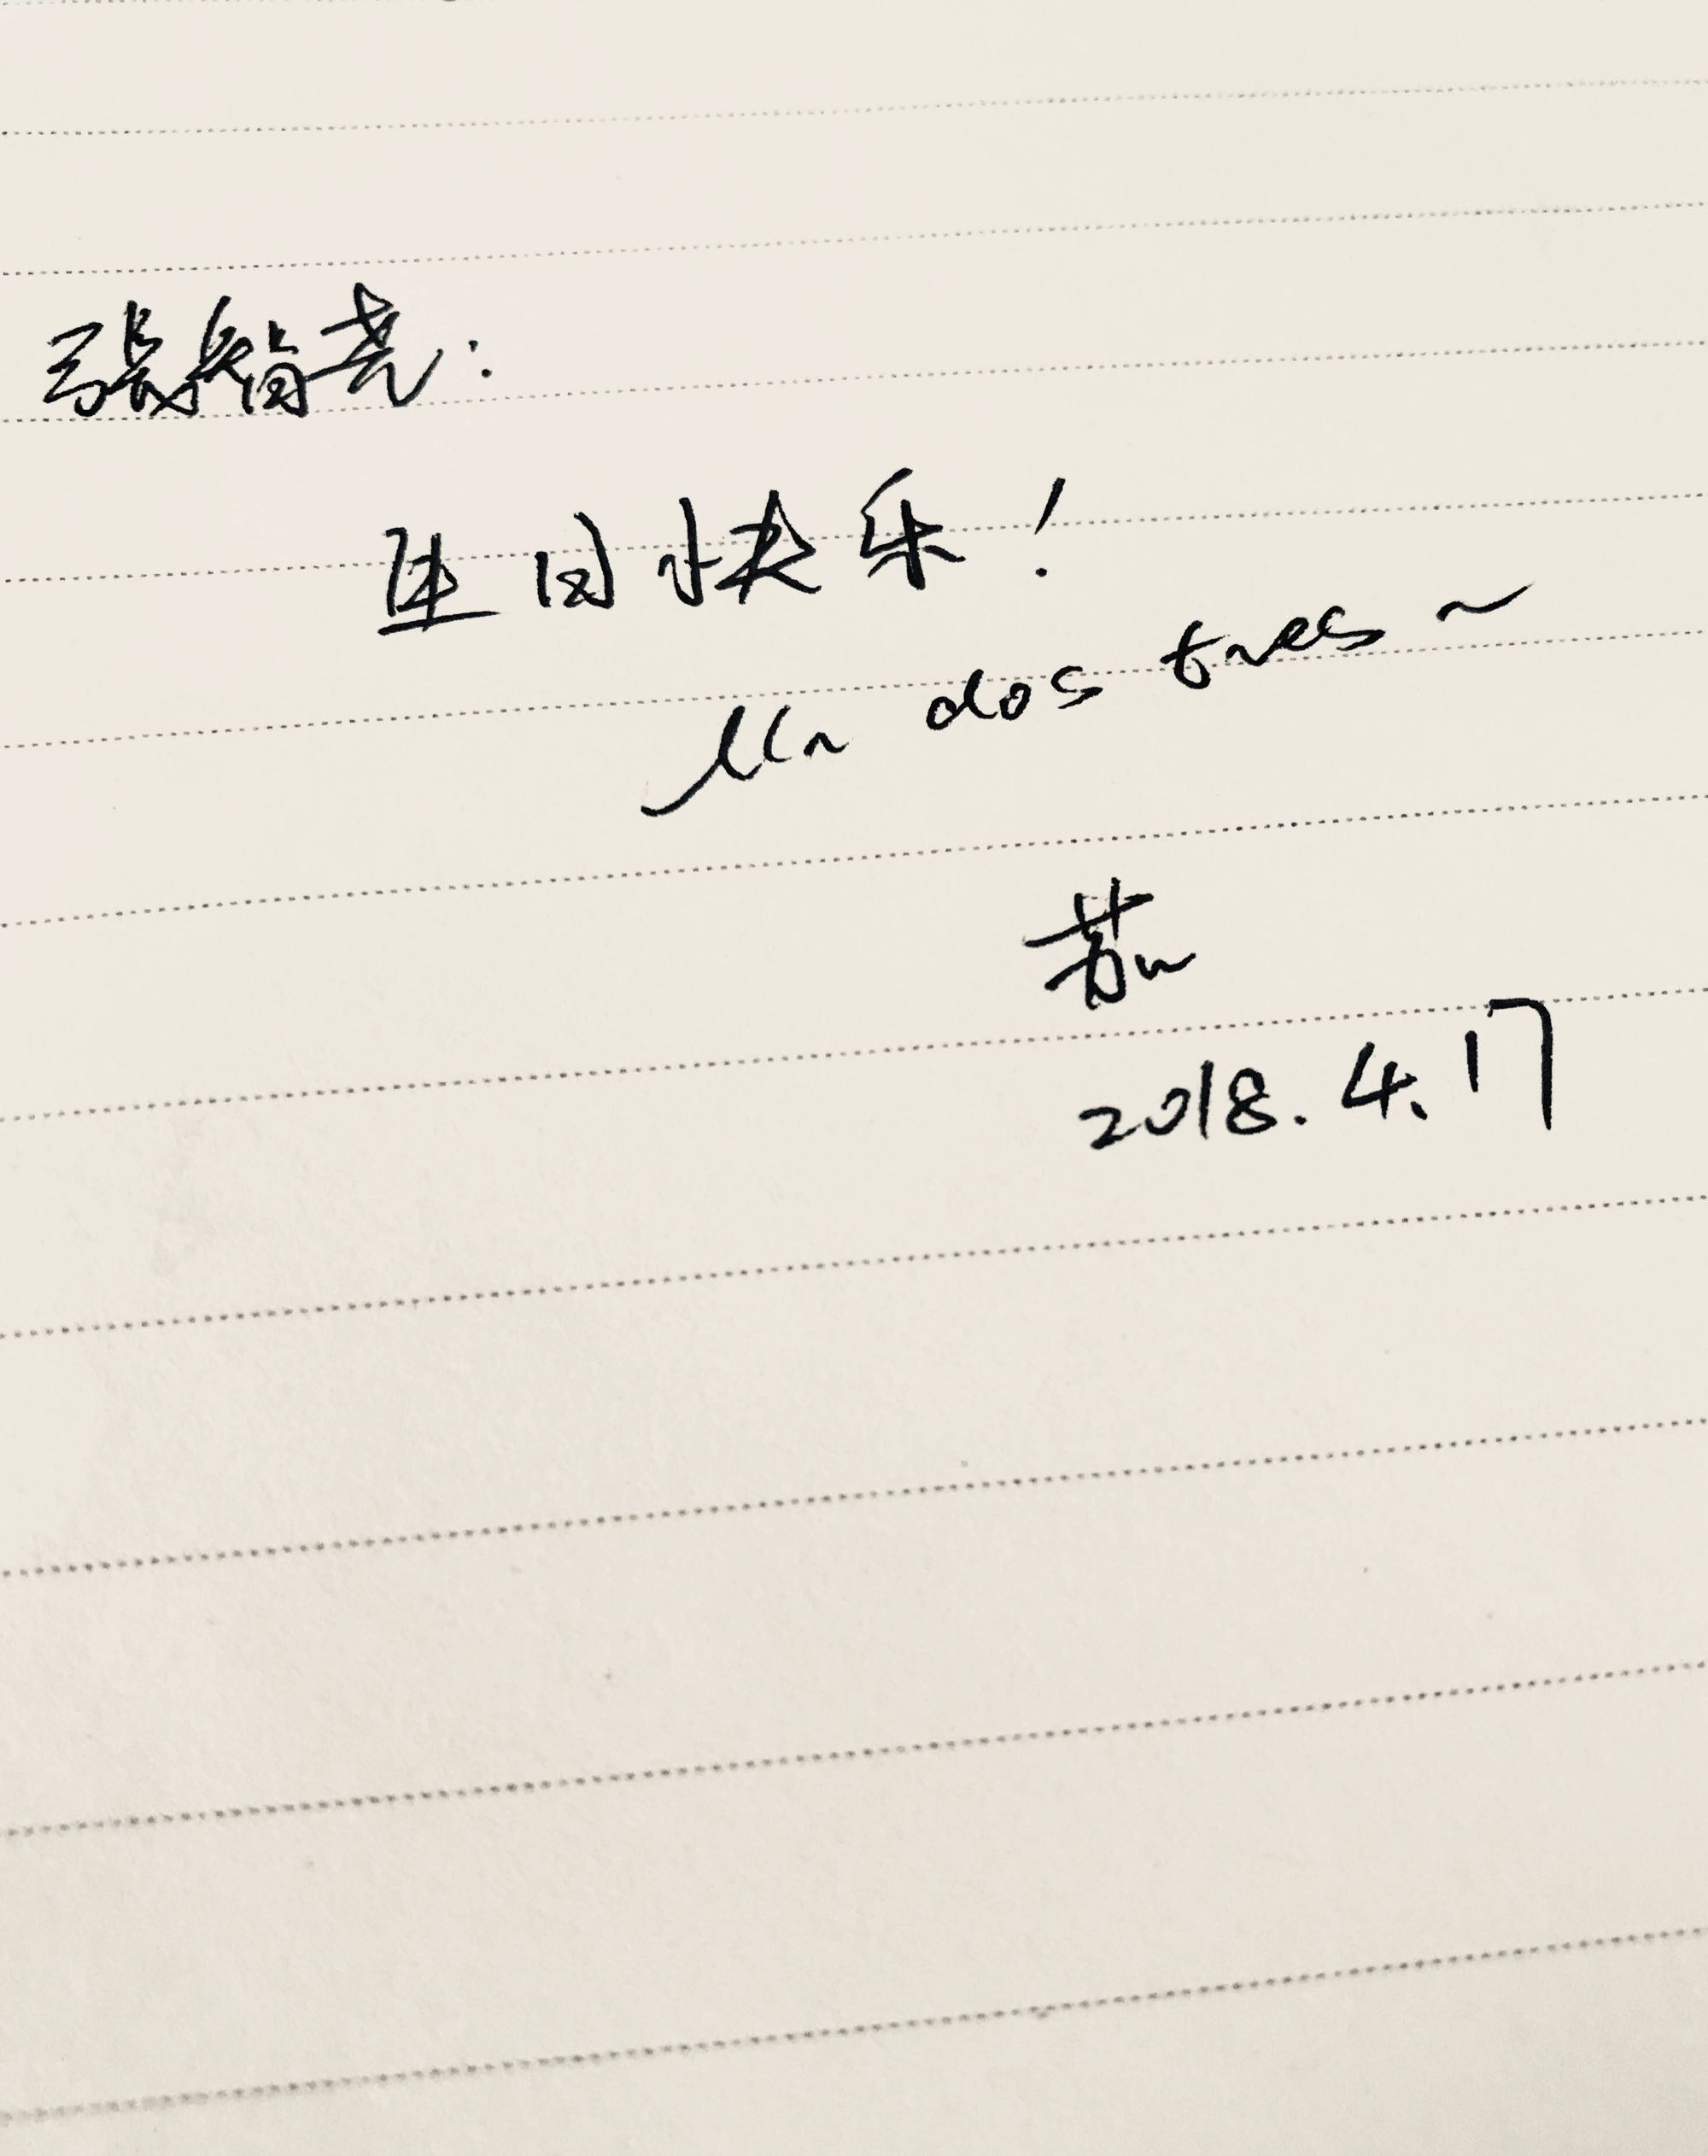 张智尧：
生日快乐！
Un dos tres ~
苏
2018.4.17